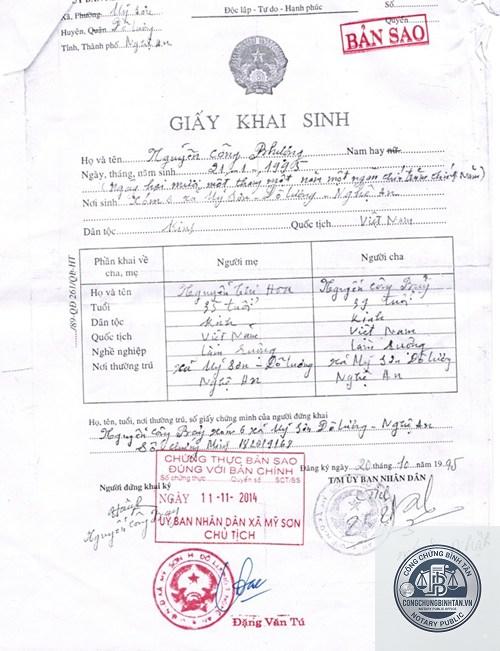 Xã, Phường Mỹ Sơn
Huyện, Quận Đô Lương
Tỉnh, Thành phố Nghệ An
Độc lập - Tự do - Hạnh phúc
Số
Quyển
BẢN SAO
GIẤY KHAI SINH
Họ và tên Nguyễn Công Phượng Nam hay nữ
Ngày, tháng, năm sinh 21-1-1995
(Ngày hai mươi một tháng một năm một ngàn chín trăm chín năm)
Nơi sinh Xóm 6 xã Mỹ Sơn - Đô Lương - Nghệ An
Dân tộc Kinh Quốc tịch Việt Nam
Phần khai về cha, mẹ Người mẹ Người cha
Họ và tên Nguyễn Thị Hoa Nguyễn Công Bảy
Tuổi 35 tuổi 37 tuổi
Dân tộc Kinh Kinh
Quốc tịch Việt Nam Việt Nam
Nghề nghiệp Làm ruộng Làm ruộng
Nơi thường trú xã Mỹ Sơn - Đô Lương xã Mỹ Sơn Đô Lương
Nghệ An Nghệ An
Họ, tên, tuổi, nơi thường trú, số giấy chứng minh của người đứng khai
Nguyễn Công Bảy xóm 6 xã Mỹ Sơn Đô Lương - Nghệ An
Số chứng minh
Đăng ký ngày 20 tháng 10 năm 1995
Người đứng khai ký
T/M ỦY BAN NHÂN DÂN
CHỨNG THỰC BẢN SAO
ĐÚNG VỚI BẢN CHÍNH
Số chứng thực Quyển số SCT/BS
NGÀY 11-11-2014
ỦY BAN NHÂN DÂN XÃ MỸ SƠN
CHỦ TỊCH
Đặng Văn Tú
CÔNG CHỨNG BÌNH TÂN
CONGCHUNGBINHTAN.VN
NOTARY PUBLIC OFFICE
NOTARY PUBLIC